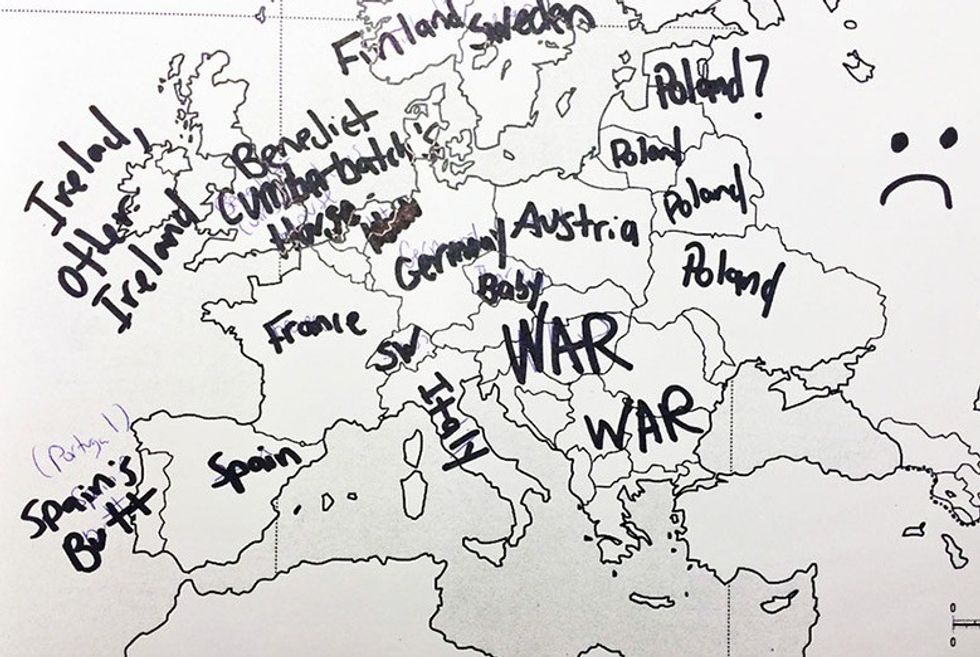 Finland Sweden
Poland?
Irelad,
Other
Ireland
Benedict
House
Poland
Poland
Austria
Germany
Baby
Poland
France
SW
WAR
Italy
WAR
(Portugal)
Spain's
Butt
Spain
0
0